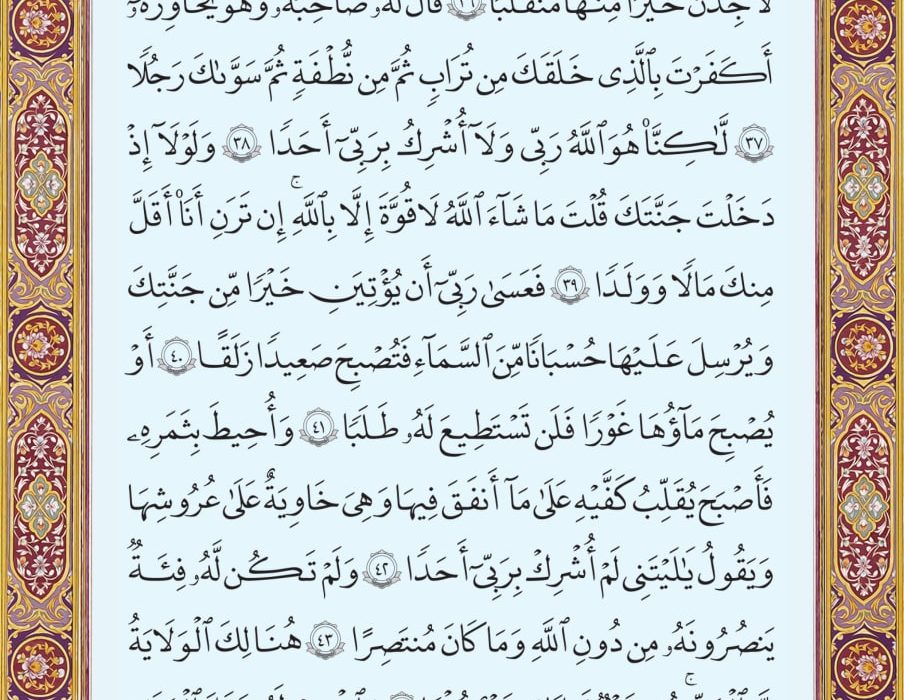 لَأَجِدَنَّ خَيْرًا مِّنْهَا مُنقَلَبًا ٣٦ قَالَ لَهُۥ صَاحِبُهُۥ وَهُوَ يُحَاوِرُهُۥٓ
أَكَفَرْتَ بِٱلَّذِى خَلَقَكَ مِن تُرَابٍ ثُمَّ مِن نُّطْفَةٍ ثُمَّ سَوَّىٰكَ رَجُلًا
٣٧ لَّٰكِنَّا۠ هُوَ ٱللَّهُ رَبِّى وَلَآ أُشْرِكُ بِرَبِّىٓ أَحَدًا ٣٨ وَلَوْلَآ إِذْ
دَخَلْتَ جَنَّتَكَ قُلْتَ مَا شَآءَ ٱللَّهُ لَا قُوَّةَ إِلَّا بِٱللَّهِ ۚ إِن تَرَنِ أَنَا۠ أَقَلَّ
مِنكَ مَالًا وَوَلَدًا ٣٩ فَعَسَىٰ رَبِّىٓ أَن يُؤْتِيَنِ خَيْرًا مِّن جَنَّتِكَ
وَيُرْسِلَ عَلَيْهَا حُسْبَانًا مِّنَ ٱلسَّمَآءِ فَتُصْبِحَ صَعِيدًا زَلَقًا ٤٠ أَوْ
يُصْبِحَ مَآؤُهَا غَوْرًا فَلَن تَسْتَطِيعَ لَهُۥ طَلَبًا ٤١ وَأُحِيطَ بِثَمَرِهِۦ
فَأَصْبَحَ يُقَلِّبُ كَفَّيْهِ عَلَىٰ مَآ أَنفَقَ فِيهَا وَهِىَ خَاوِيَةٌ عَلَىٰ عُرُوشِهَا
وَيَقُولُ يَٰلَيْتَنِى لَمْ أُشْرِكْ بِرَبِّىٓ أَحَدًا ٤٢ وَلَمْ تَكُن لَّهُۥ فِئَةٌ
يَنصُرُونَهُۥ مِن دُونِ ٱللَّهِ وَمَا كَانَ مُنتَصِرًا ٤٣ هُنَالِكَ ٱلْوَلَٰيَةُ